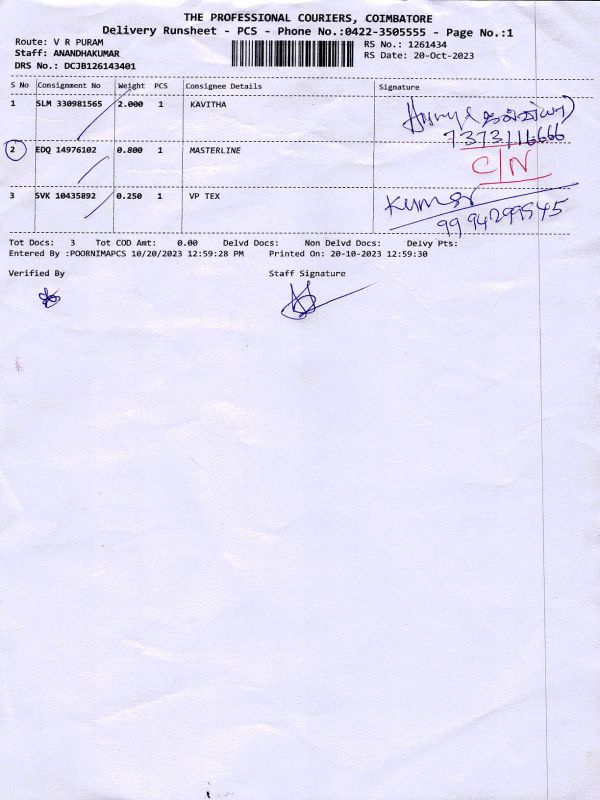 THE PROFESSIONAL COURIERS, COIMBATORE
Delivery Runsheet - PCS - Phone No.:0422-3505555 - Page No.:1
Route: V R PURAM
RS No.: 1261434
Staff: ANANDHAKUMAR
RS Date: 20-Oct-2023
DRS No.: DCJB126143401
S No Consignment No Weight PCS Consignee Details Signature
1 SLM 330981565 2.000 1 KAVITHA
7373116666
2 EDQ 14976102 0.800 1 MASTERLINE C/N
3 SVK 10435892 0.250 1 VP TEX Kumar
9994299545
Tot Docs: 3 Tot COD Amt: 0.00 Delvd Docs: Non Delvd Docs: Delvy Pts:
Entered By :POORNIMAPCS 10/20/2023 12:59:28 PM Printed On: 20-10-2023 12:59:30
Verified By Staff Signature